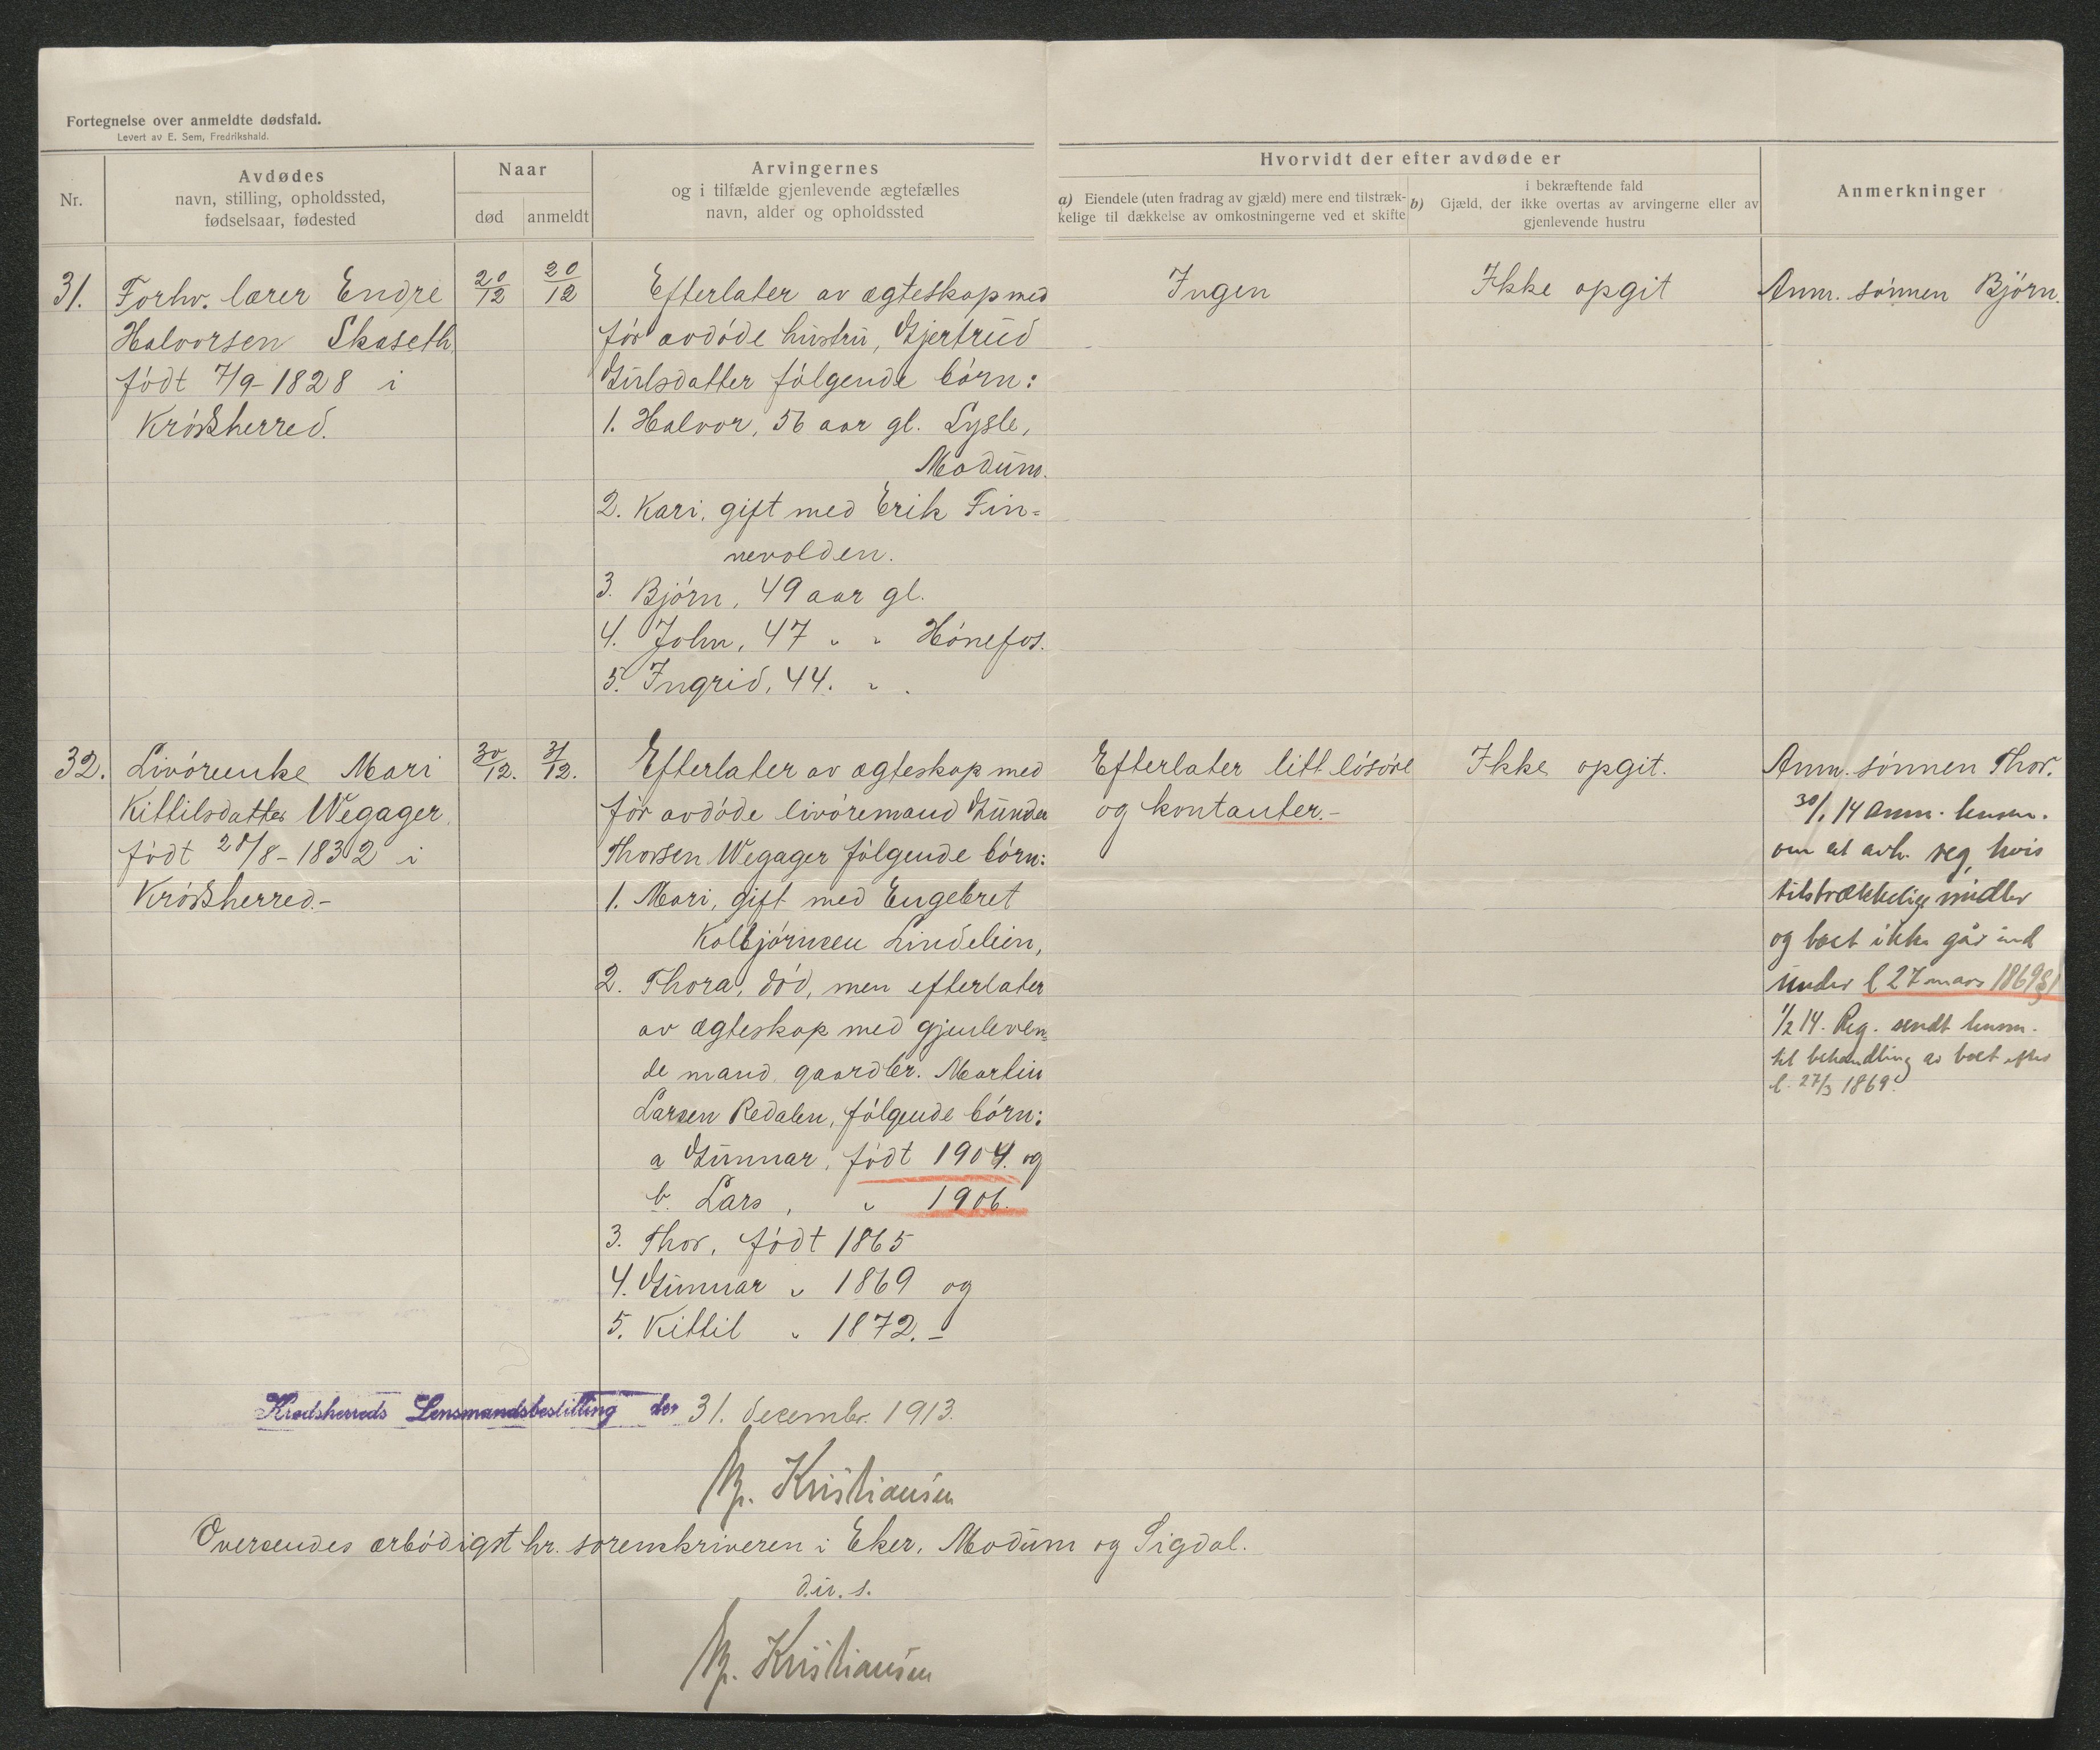 Fortegnelse over anmeldte dødsfald.
Levert av E. Sem, Fredrikshald.
Nr.
Avdødes
navn, stilling, opholdssted,
fødselsaar, fødested
Naar
død
anmeldt
Arvingernes
og i tilfælde gjenlevende ægtefælles
navn, alder og opholdssted
Hvorvidt der efter avdøde er
a) Eiendele (uten fradrag av gjæld) mere end tilstræk-
kelige til dækkelse av omkostningerne ved et skifte
i bekræftende fald
b) Gjæld, der ikke overtas av arvingerne eller av
gjenlevende hustru
Anmerkninger
31.
Forhv. lærer Endre
Halvorsen Skaseth,
født 7/9-1828 i
Krødsherred.
20/12
20/12
Efterlater av ægteskap med
før avdøde hustru, Gjertrud
Gulsdatter følgende børn:
1. Halvor, 56 aar gl. Sysle,
Modum.
2. Kari, gift med Erik Fin=
nevolden.
3. Bjørn, 49 aar gl.
4. John, 47 " " Hønefos.
5. Ingrid, 44. " .
Ingen
Ikke opgit
Anm. sønnen Bjørn.
32.
Livørenke Mari
Kittilsdatter Wegager,
født 28/8-1832 i
Krødsherred.-
30/12.
31/12.
Efterlater av ægteskap med
før avdøde livøremand Gunder
Thorsen Wegager følgende børn:
1. Mari, gift med Engebret
Kolbjørnsen Lindelien,
2. Thora, død, men efterlater
av ægteskap med gjenleven=
de mand, gaardbr. Martin
Larsen Redalen, følgende børn:
a Gunnar, født 1904. og
b. Lars, " 1906.
3. Thor, født 1865
4. Gunnar " 1869 og
5. Kittil " 1872.-
Efterlater litt løsøre
og kontanter.-
Ikke opgit.
Anm. sønnen Thor.
30/1 14 anm. lensm.
om at avh. reg, hvis
tilstrækkelige midler
og boet ikke går ind
under l 27 mars 1869 § 1
1/2 14. Reg. sendt lensm.
til behandling av boet efter
l. 27/3 1869.
Krødsherreds Lensmandsbestilling den 31. decembr. 1913.
Kristiansen
Oversendes ærbødigst hr. sorenskriveren i Eker, Modum og Sigdal.
d.u.s.
Kristiansen